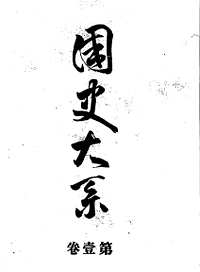 国史大系
第壹卷